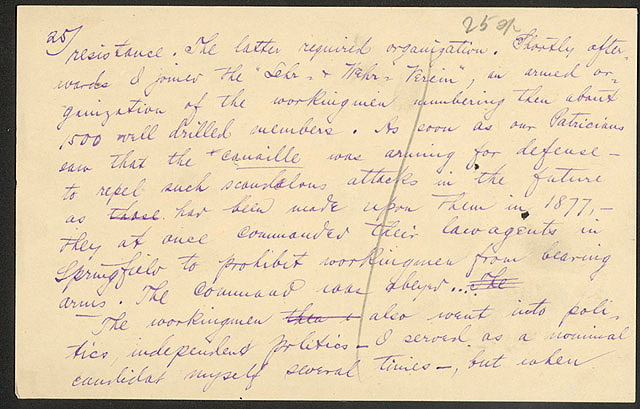 25/ 25 op
resistance. The latter required organization. Shortly after-
wards I joined the "Lehr- & Wehr-Verein", an armed or-
ganization of the workingmen numbering then about
1500 well drilled members. As soon as our Patricians
saw that the canaille was arming for defense –
to repel such scandalous attacks in the future
as those had been made upon them in 1877, –
they at once commanded their law agents in
Springfield to prohibit workingmen from bearing
arms. The command was obeyed... The
The workingmen then also went into poli-
tics, independent politics – I served as a nominal
candidat myself several times –, but when